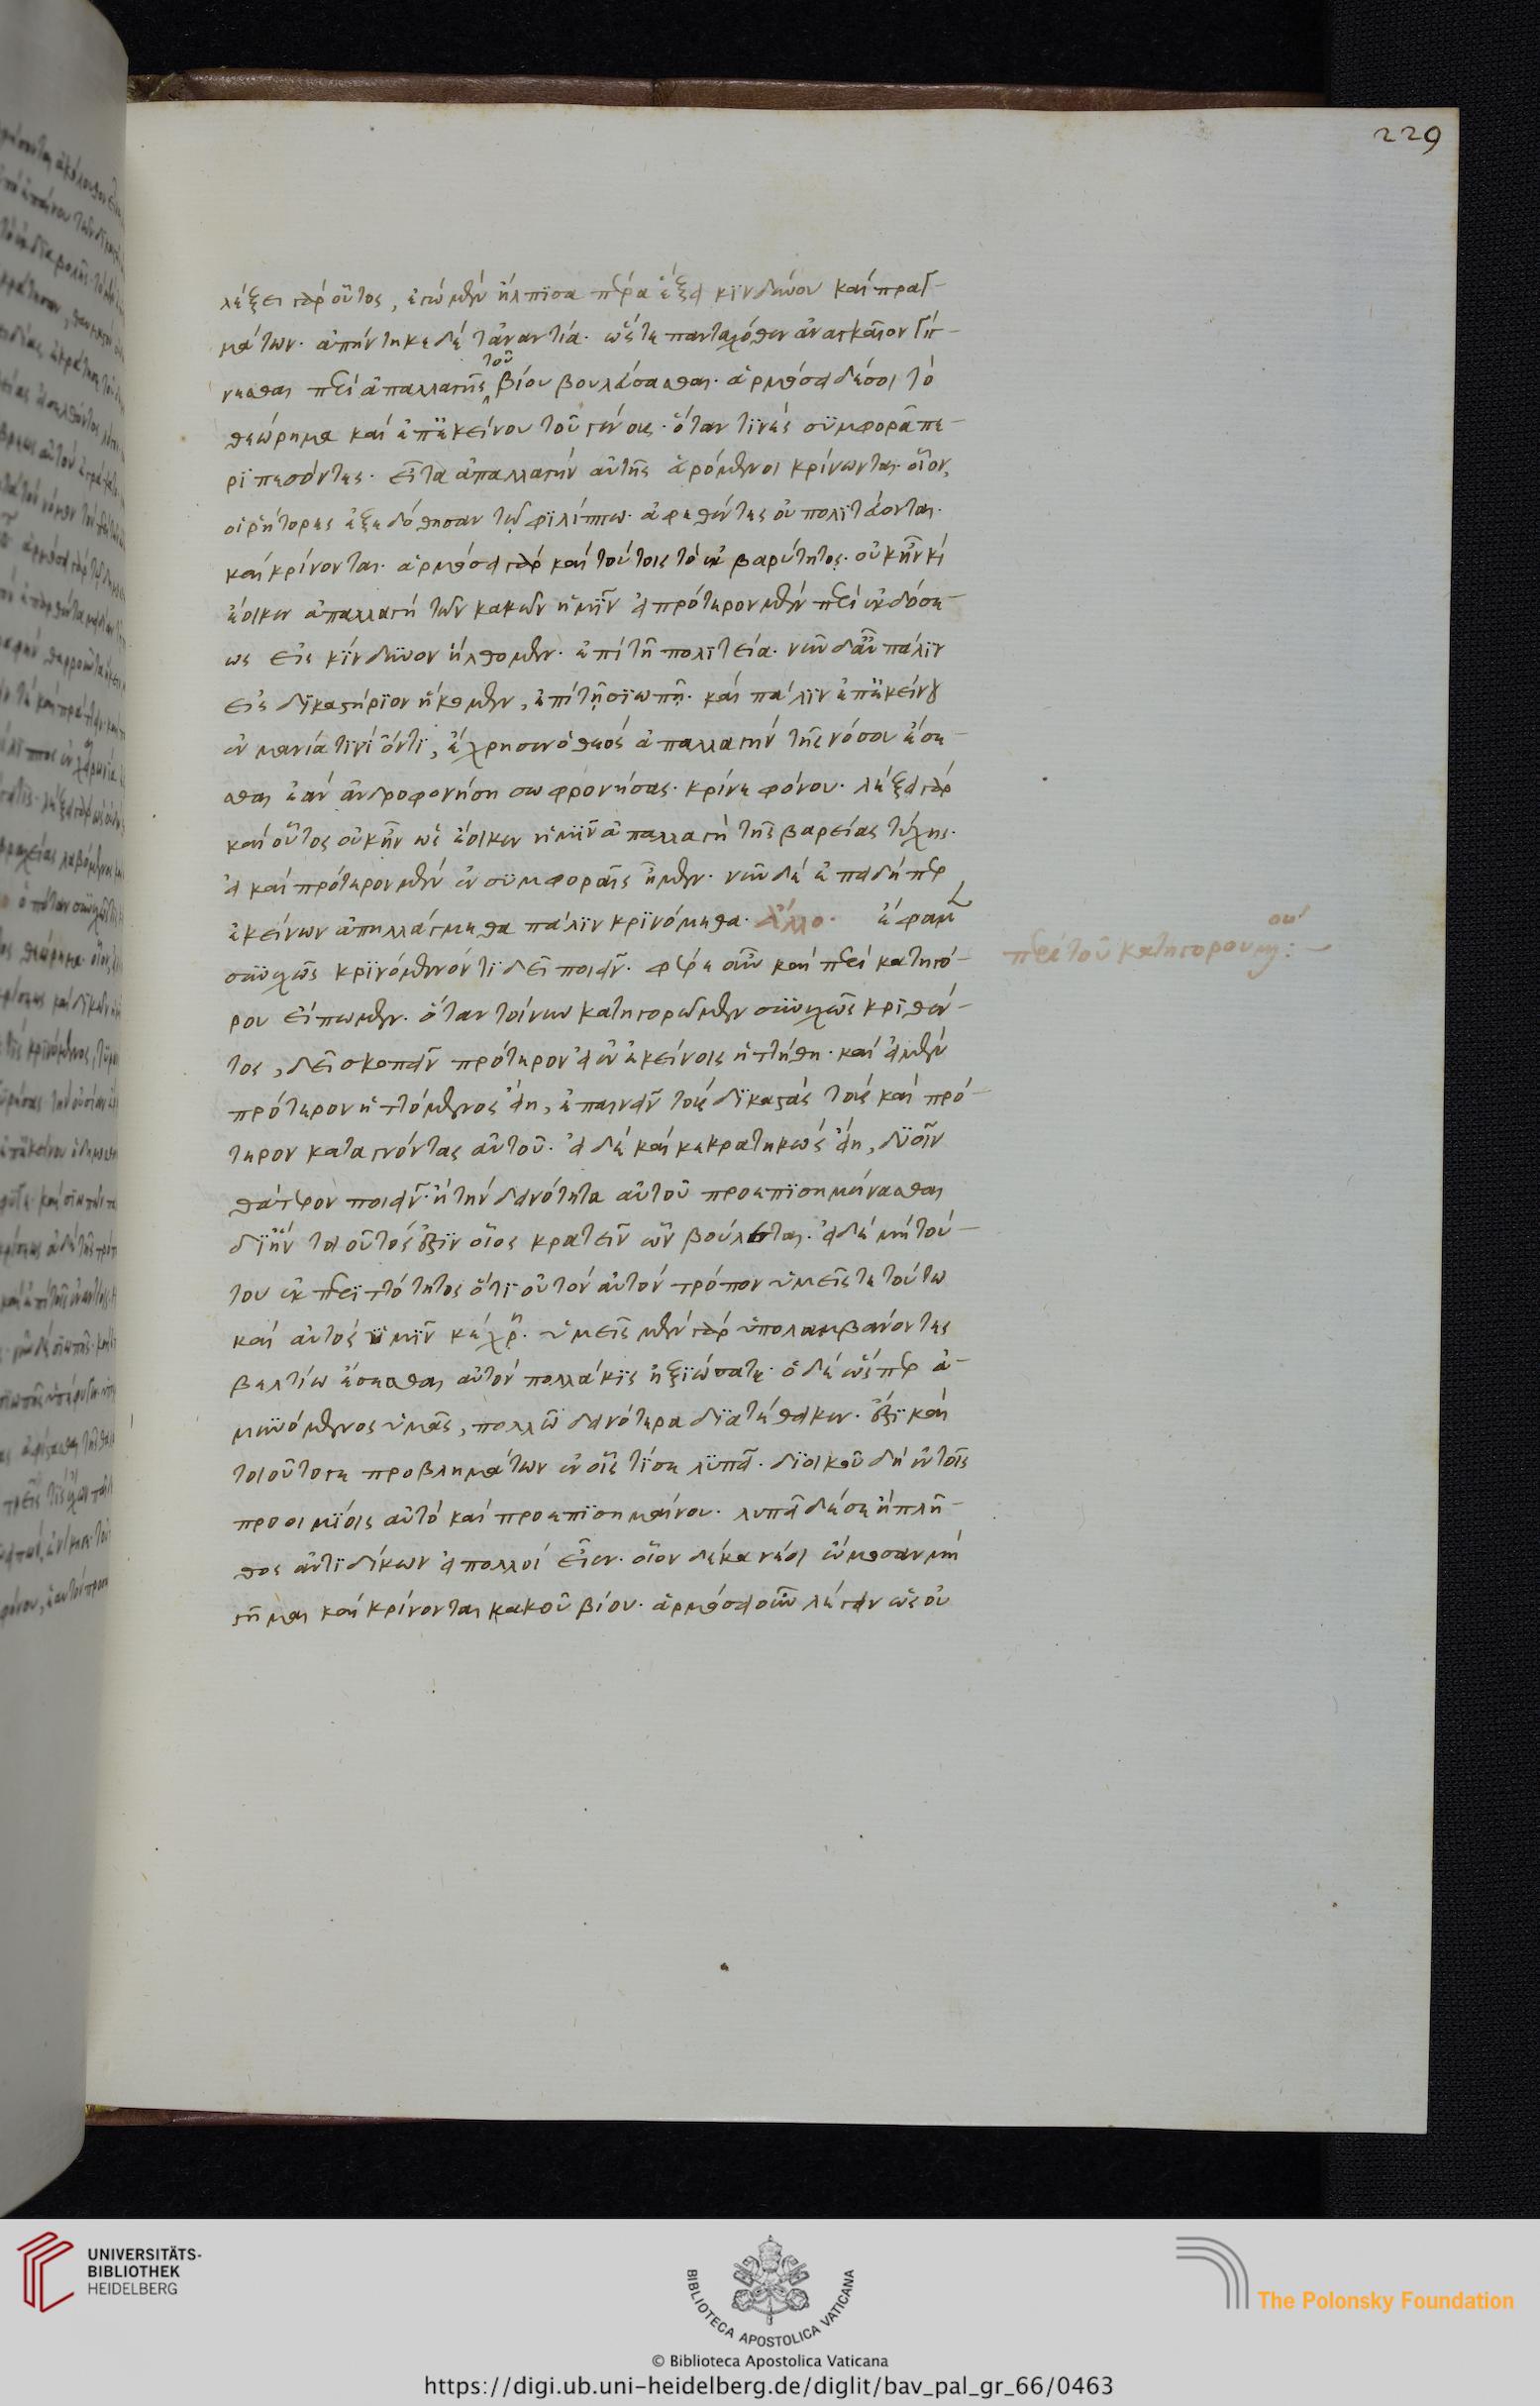 229
λέξει γὰρ οὗτος, ἐγὼ μὲν ἤλπισα πέρα ἕξειν κινδύνου καὶ πραγ-
μάτων. ἀπήντηκε δὲ τἀναντία. ὥστε πανταχόθεν ἀναγκαῖον γί-
νεσθαι περὶ ἀπαλλαγῆς τοῦ βίου βουλεύσασθαι. ἁρμόσει δέ σοι τὸ
θεώρημα καὶ ἐπ' ἐκείνου τοῦ γένους. ὅταν τινὲς συμφορᾶ πε-
ριπεσόντες. εἶτα ἀπαλλαγὴν αὐτῆς εὑρόμενοι κρίνωνται. οἷον,
οἱ ῥήτορες ἐξεδόθησαν τῷ φιλίππω. ἀφεθέντες οὐ πολιτεύονται.
καὶ κρίνονται. ἁρμόσει γὰρ καὶ τούτοις τὸ ἐκ βαρύτητος. οὐκ ἦν
ἔοικεν ἀπαλλαγὴ τῶν κακῶν ἡμῖν εἰ πρότερον μὲν περὶ ἐκδόσε-
ως εἰς κίνδυνον ἤλθομεν. ἐπὶ τῆ πολιτεία. νῦν δ' αὖ πάλιν
εἰς δικαστήριον ἥκομεν, ἐπὶ τῇ σιωπῇ. καὶ πάλιν ἐπ' ἐκείνου
ἐν μανία τινὶ ὄντι, ἔχρησεν ὁ θεὸς ἀπαλλαγὴν τῆς νόσου ἔσε-
σθαι ἐὰν ἀνδροφονήση σωφρονήσας. κρίνε φόνου. λέξει γὰρ
καὶ οὗτος οὐκ ἦν ὡς ἔοικεν ἡμῖν ἀπαλλαγὴ τῆς βαρείας τύχης.
εἰ καὶ πρότερον μὲν ἐν συμφοραῖς ἦμεν. νῦν δὲ ἐπειδήπερ
ἐκείνων ἀπηλλάγμεθα πάλιν κρινόμεθα. Ἄλλο. ἔφαμεν
συνεχῶς κρινόμενον τί δεῖ ποιεῖν. φέρε οὖν καὶ περὶ κατηγό-
ρου εἴπωμεν. ὅταν τοίνυν κατηγορῶμεν συνεχῶς κριθέν-
τος, δεῖ σκοπεῖν πρότερον εἰ ἐν ἐκείνοις ἡττήθη. καὶ εἰ μὲν
πρότερον ἡττόμενος εἴη, ἐπαινεῖν τοὺς δικαστὰς τοὺς καὶ πρό-
τερον καταγνόντας αὐτοῦ. εἰ δὲ καὶ κεκρατηκὼς εἴη, δυοῖν
θάτερον ποιεῖν. ἢ τὴν δεινότητα αὐτοῦ προεπισημήνασθαι
δι' ἣν τοιοῦτός ἐστιν οἷος κρατεῖν ὧν βούλεται. εἰ δὲ μὴ τού-
του ἐκ περιττότητος ὅτι οὐ τὸν αὐτὸν τρόπον ὑμεῖς τε τούτω
καὶ αὐτὸς ὑμῖν κέχρηται. ὑμεῖς μὲν γὰρ ὑπολαμβάνοντες
βελτίω ἔσεσθαι αὐτὸν πολλάκις ἠξιώσατε. ὁ δὲ ὥσπερ ἀ-
μυνόμενος ὑμᾶς, πολλῶ δεινότερα διατέθεικεν. ἔστι καὶ
τοιοῦτό τι προβλημάτων ἐν οἷς τί σε λυπεῖ. διοικοῦ δὴ ἐν τοῖς
προοιμίοις αὐτὸ καὶ προεπισημαίνου. λυπεῖ δέ σε ἢ πλῆ-
θος ἀντιδίκων εἰ πολλοὶ εἶεν. οἷον δέκα νέοι ὤμοσαν μὴ
γῆμαι καὶ κρίνονται κακοῦ βίου. ἁρμόσει οὖν λέγειν ὡς οὐ
περὶ τοῦ κατηγορουμένου:
UNIVERSITÄTS-
BIBLIOTHEK
HEIDELBERG
BIBLIOTECA APOSTOLICA VATICANA
The Polonsky Foundation
© Biblioteca Apostolica Vaticana
https://digi.ub.uni-heidelberg.de/diglit/bav_pal_gr_66/0463